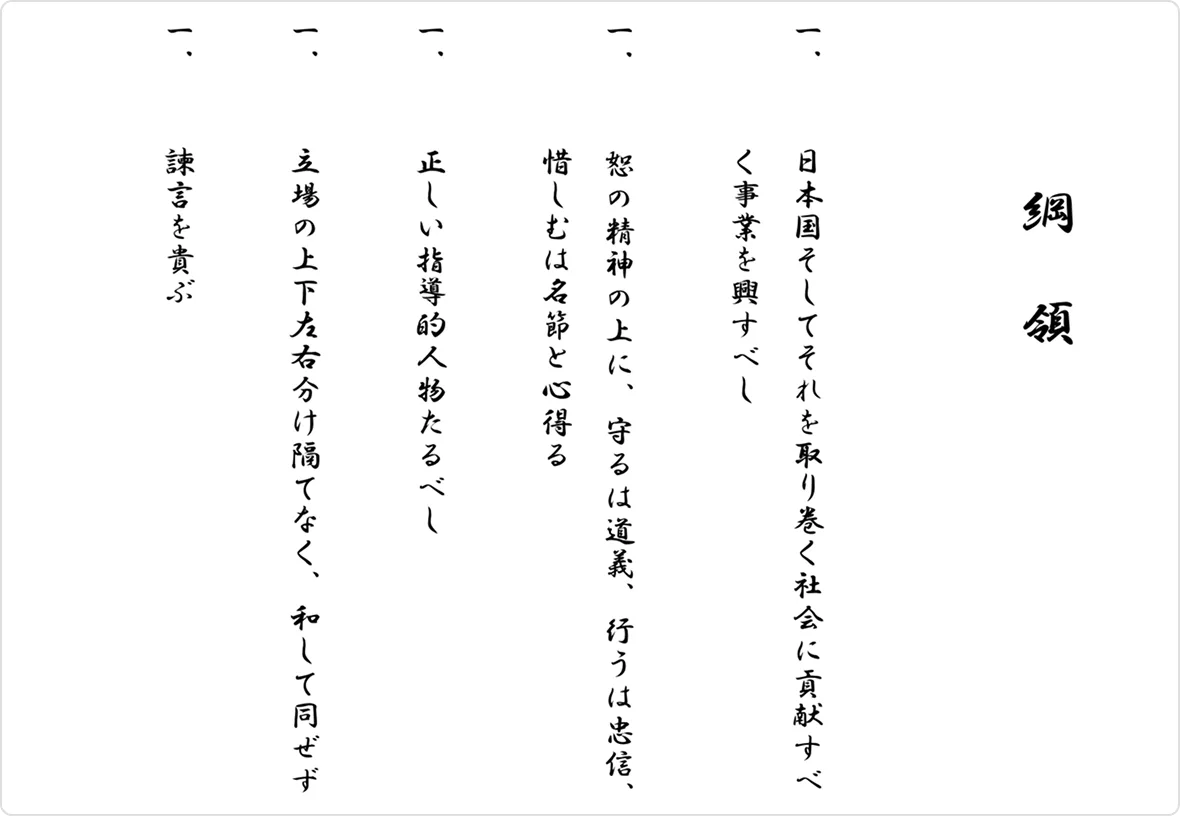 綱領
一、日本国そしてそれを取り巻く社会に貢献すべ
く事業を興すべし
一、恕の精神の上に、守るは道義、行うは忠信、
惜しむは名節と心得る
一、正しい指導的人物たるべし
一、立場の上下左右分け隔てなく、和して同ぜず
一、諫言を貴ぶ